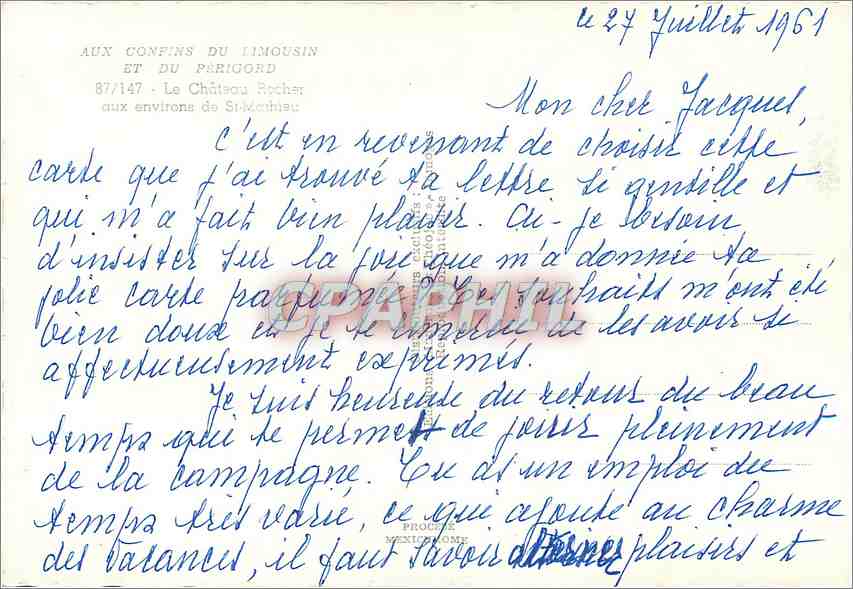 le 27 Juillet 1961
AUX CONFINS DU LIMOUSIN
ET DU PÉRIGORD
87/147 - Le Château Rocher
aux environs de St-Mathieu
Mon cher Jacques,
C'est en revenant de choisir cette
carte que j'ai trouvé ta lettre si gentille et
qui m'a fait bien plaisir. Ai-je besoin
d'insister sur la joie que m'a donnée ta
jolie carte parfumée. Tes souhaits m'ont été
bien doux et je te remercie de les avoir si
affectueusement exprimés.
Je suis heureuse du retour du beau
temps qui te permet de jouir pleinement
de la campagne. Tu as un emploi du
temps très varié, ce qui ajoute au charme
des vacances, il faut savoir alterner plaisirs et
PROCÉDÉ
MEXICHROME
CPAPHIL